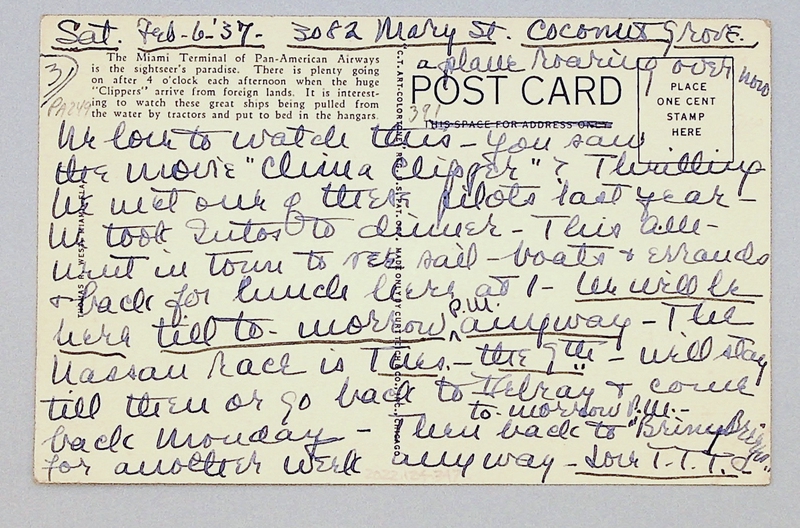 Sat. Feb-6-'37- 3082 Mary St. Coconut Grove.
a plane roaring over now
3)
The Miami Terminal of Pan-American Airways
is the sightseer's paradise. There is plenty going
on after 4 o'clock each afternoon when the huge
"Clippers" arrive from foreign lands. It is interest-
ing to watch these great ships being pulled from
the water by tractors and put to bed in the hangars.
PA249
391
POST CARD
THIS SPACE FOR ADDRESS ONLY
PLACE
ONE CENT
STAMP
HERE
We love to watch this - you saw
the movie "China Clipper"? Thrilling
We met one of these pilots last year -
We took to dinner - This a.m-
went in town to see sail-boats & errands
& back for lunch here at 1- We will be
here till to-morrow P.M. anyway - The
Nassau Race is Tues. - the 9th - will stay
till then or go back to Delray & come
to-morrow P.M. -
back Monday - Then back to "Briny Breezes"
for another week anyway - Love T.T.T.
C.T. ART-COLORTONE